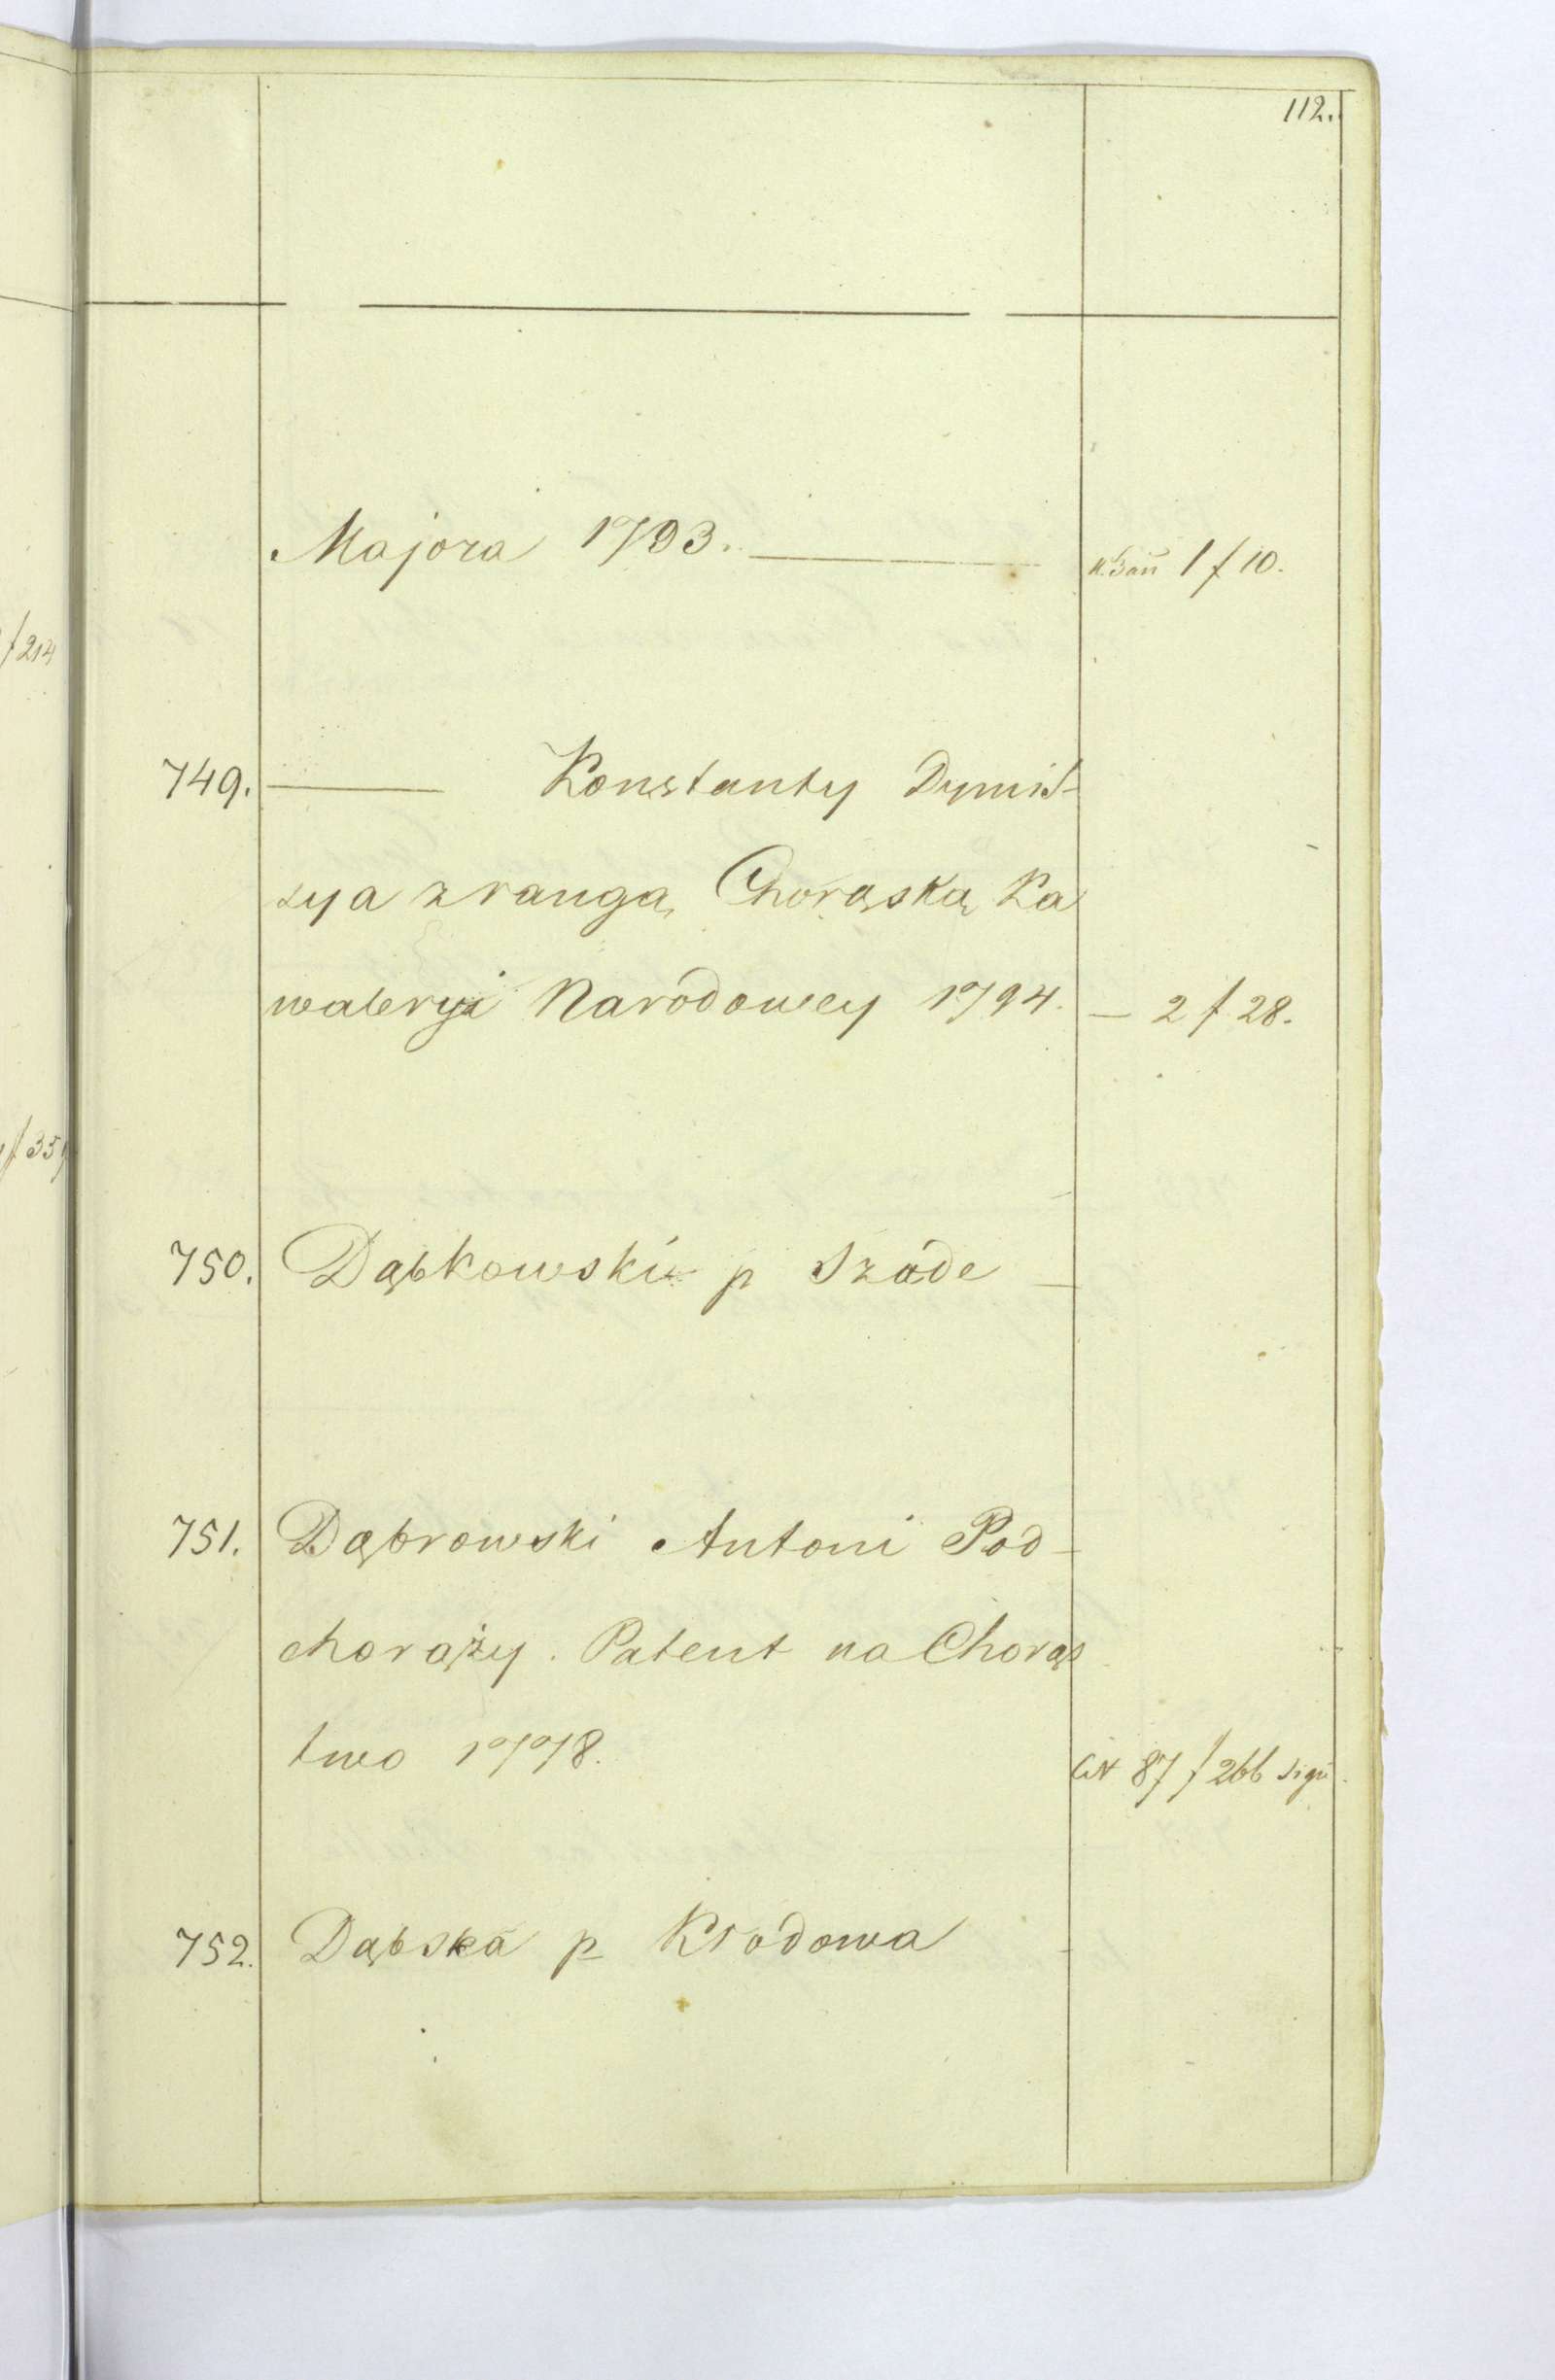 112.
Majora 1793. 1 f 10.
749. Konstanty Dymis-
sya z rangą Chorąską Ka
waleryi Narodowey 1794. — 2 f 28.
750. Dąbkowski p Szade
751. Dąbrowski Antoni Pod-
chorąży. Patent na Chorąs
two 1778.
87 f 266 Sign
752. Dąbska p Kłodowa
f 214
f 35